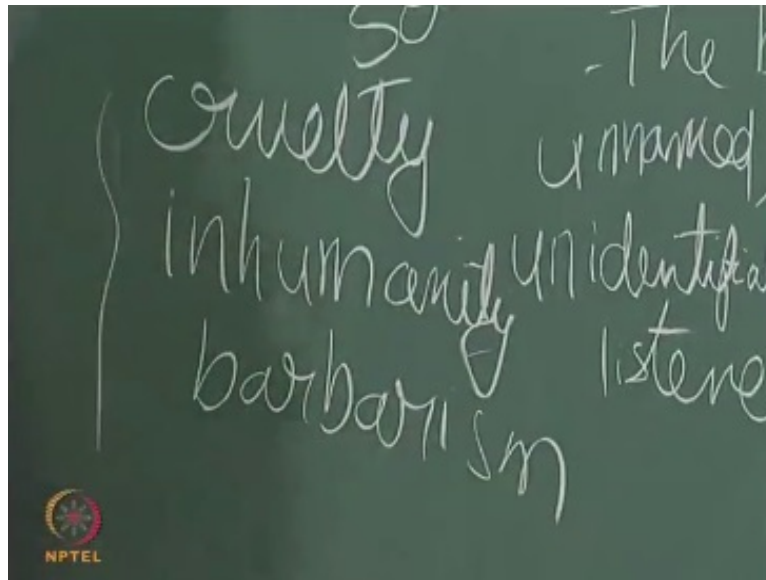 so
cruelty
inhumanity
barbarism
- The
unnamed,
unidentifia
listene
NPTEL